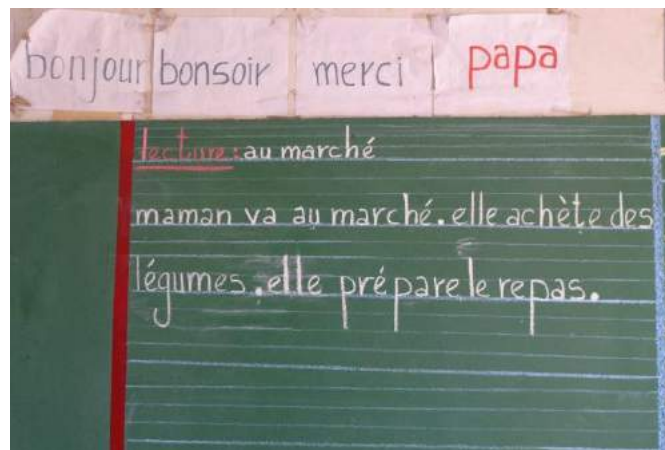 bonjour bonsoir merci papa
lecture : au marché
maman va au marché. elle achète des
légumes. elle prépare le repas.